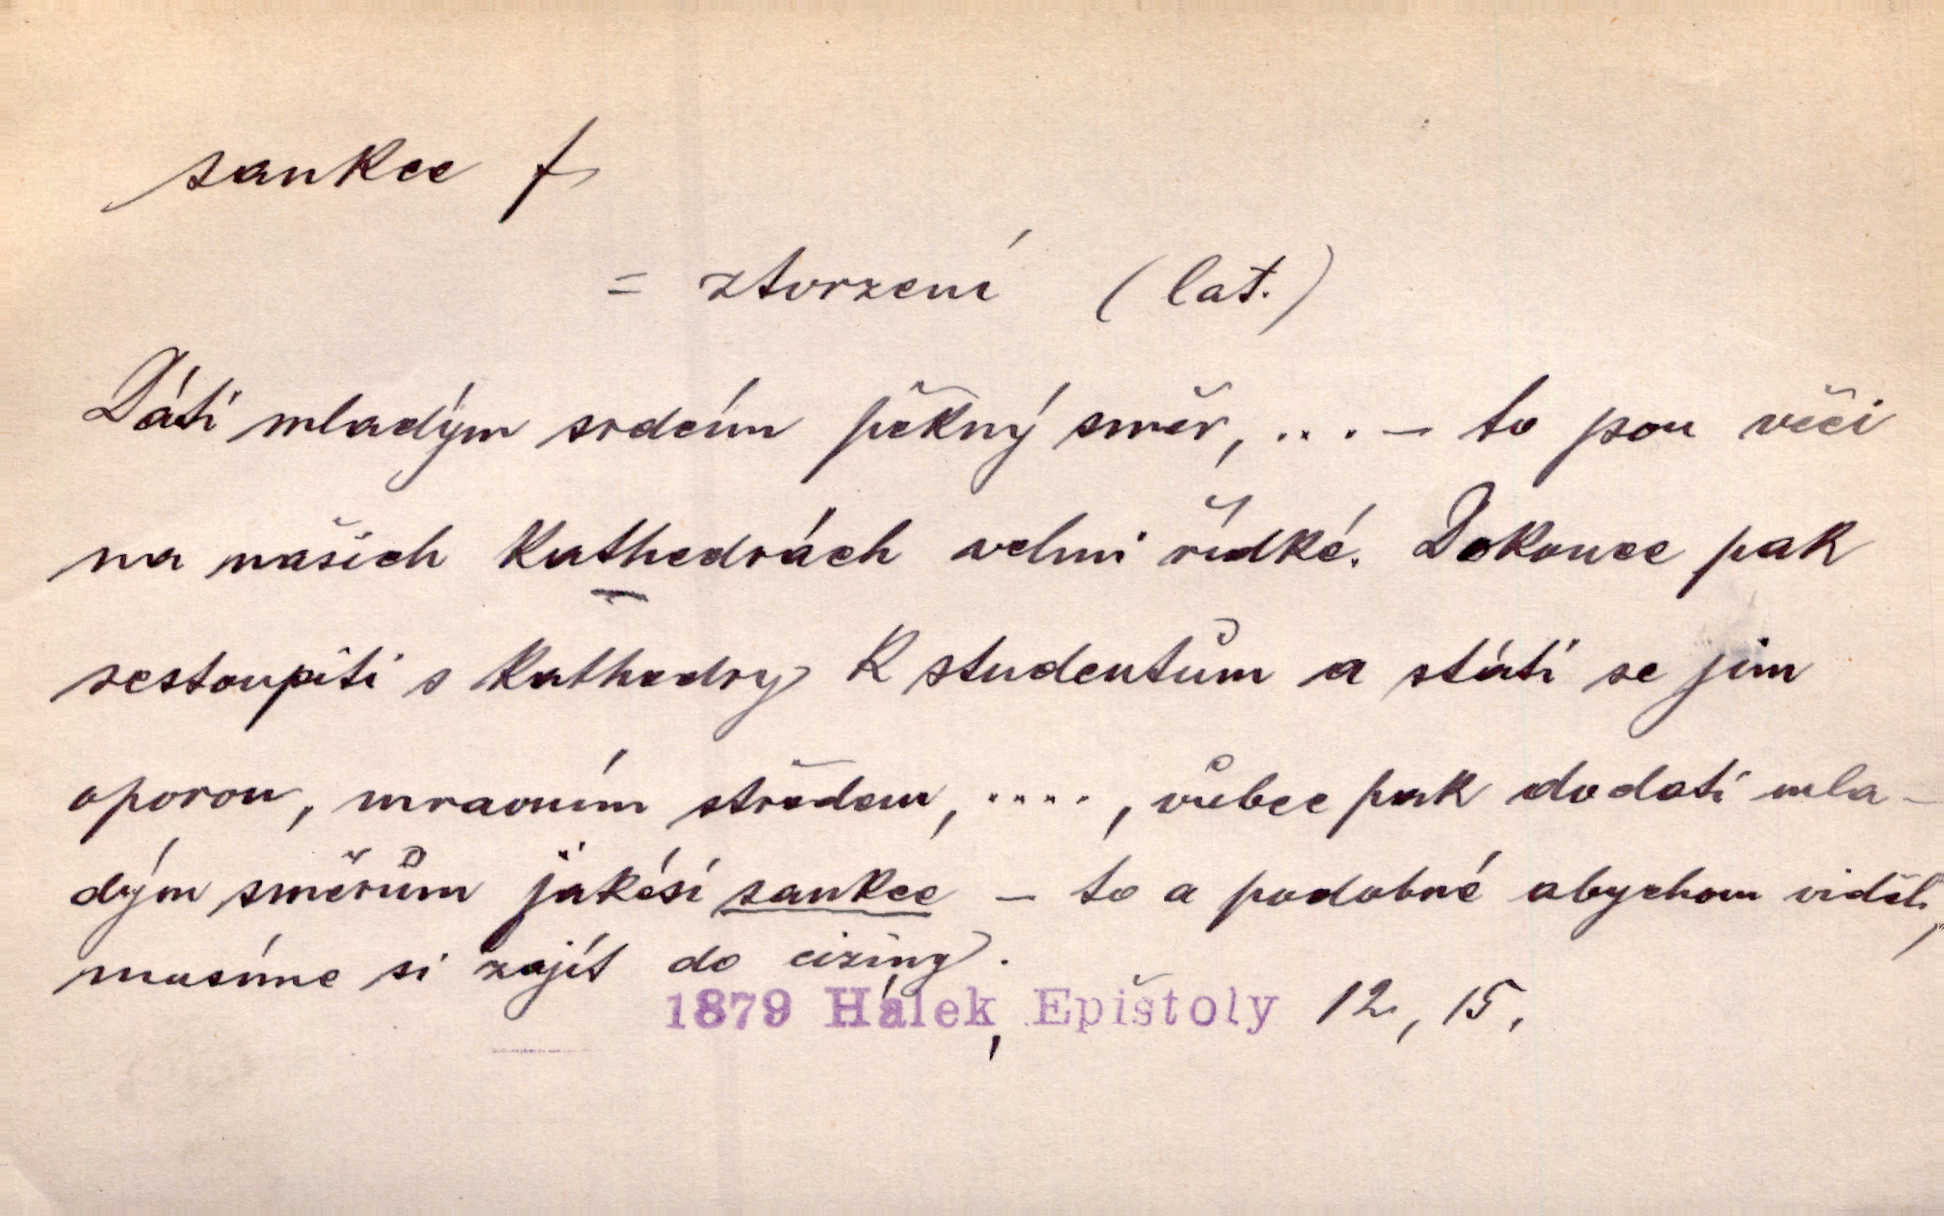 sankce f
= ztvrzení (lat.)
Dáti mladým srdcím pěkný směr, ... – to jsou věci
na našich kathedrách velmi řídké. Dokonce pak
sestoupiti s kathedry k studentům a státi se jim
oporou, mravním středem, ...., vůbec pak dodati mla-
dým směrům jakési sankce – to a podobné abychom viděli,
musíme si zajít do ciziny.
1879 Hálek, Epištoly 12, 15.